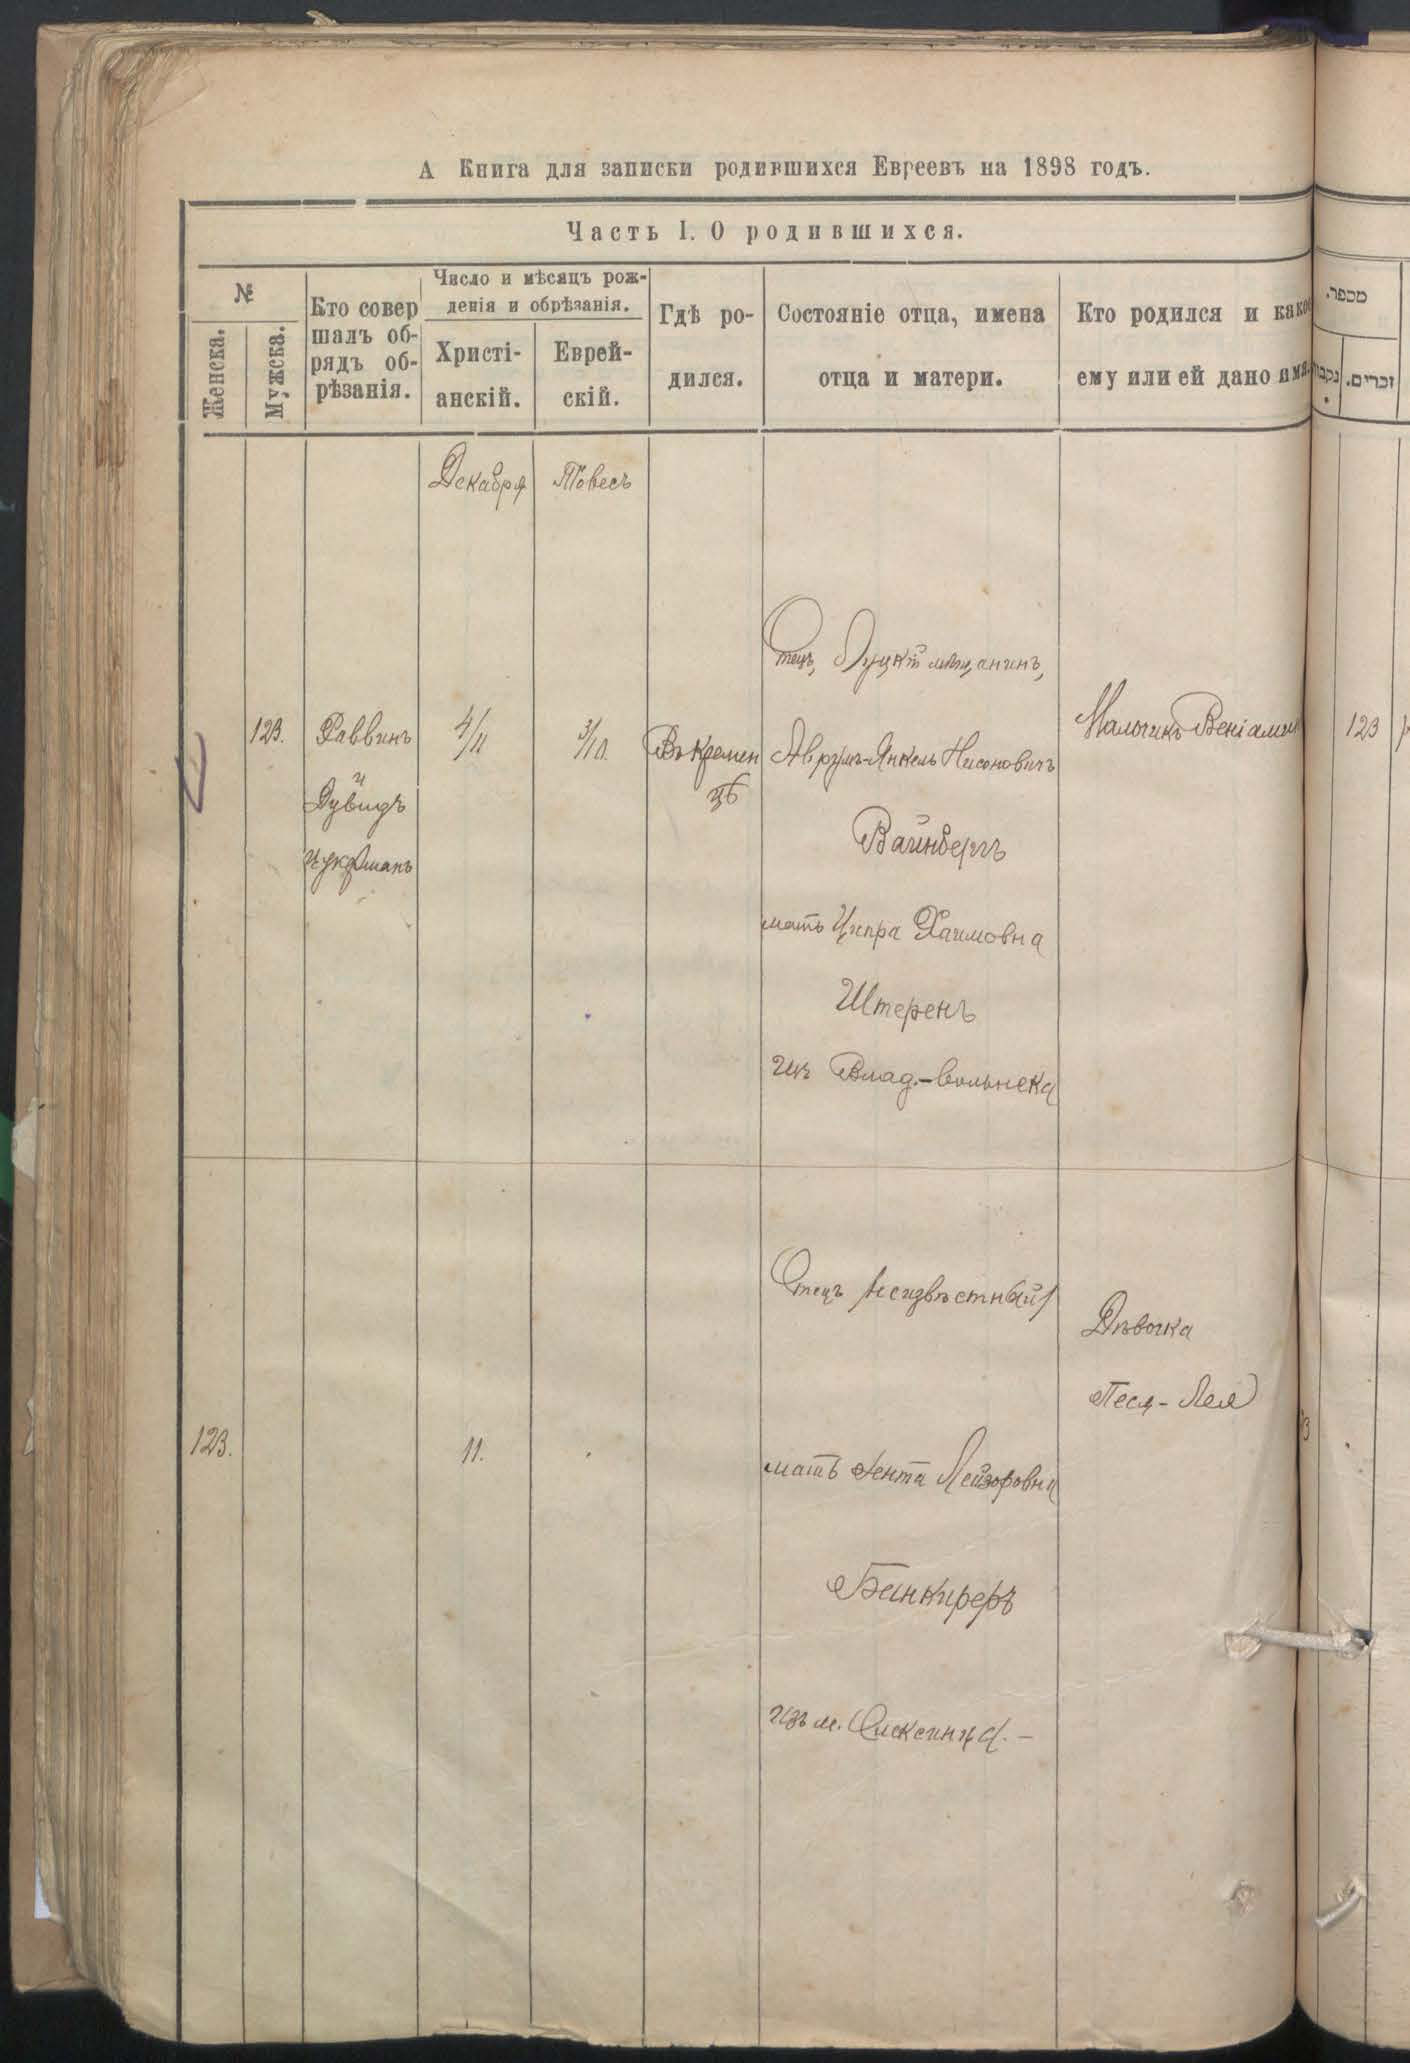 А Книга для записки родившихся Евреевъ на 1898 годъ.
Часть I. О родившихся.
№
Женска.
Мужска.
Кто совер
шалъ об-
рядъ об-
рѣзанія.
Число и мѣсяцъ рож-
денія и обрѣзанія.
Христі-
анскій.
Еврей-
скій.
Гдѣ ро-
дился.
Состояніе отца, имена
отца и матери.
Кто родился и како
ему или ей дано имя.
מספר.
זכרים.
Декабря
Тевесъ
123.
Раввинъ
и
Дувидъ
Цукерманъ
4/11
3/10.
Въ Кремен
цѣ
Отецъ, Луцкій мѣщанинъ,
Аврумъ-Янкель Нисоновичъ
Вайнбергъ
мать Ципра Хаимовна
Штеренъ
изъ Влад.-Волынска
Мальчикъ Веніамин
123
123.
11.
Отецъ неизвѣстный
мать Ента Лейзоровна
Бинкиреръ
изъ м. Олексинца.-
Дѣвочка
Песя-Лея